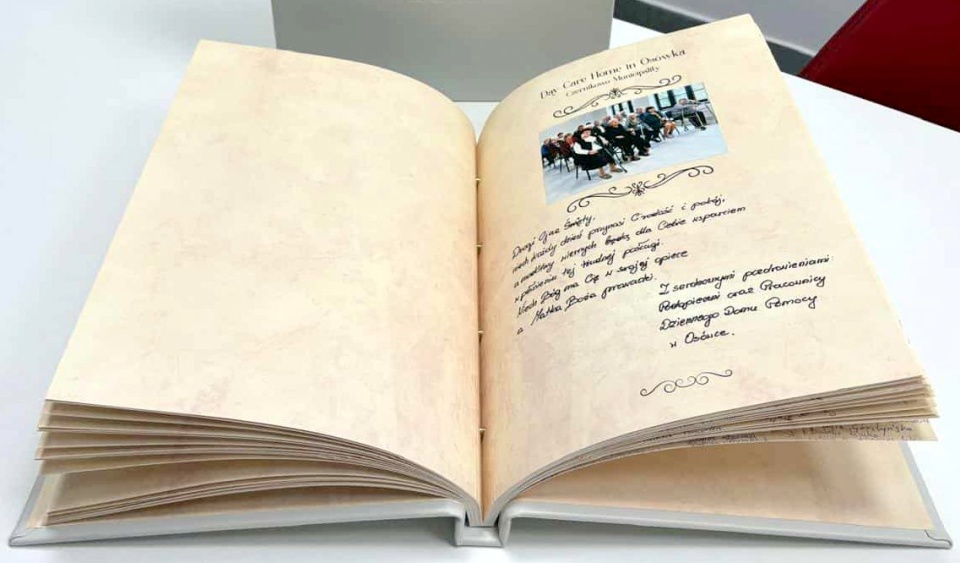 Day Care Home in Osówka
Czernikowo Municipality
Drogi Ojcze Święty,
niech każdy dzień przynosi Ci radość i pokój,
a modlitwy wiernych będą dla Ciebie wsparciem
w pełnieniu tej trudnej posługi.
Niech Bóg ma Cię w swojej opiece
a Matka Boża prowadzi.
Z serdecznymi pozdrowieniami
Podopieczni oraz Pracownicy
Dziennego Domu Pomocy
w Osówce.